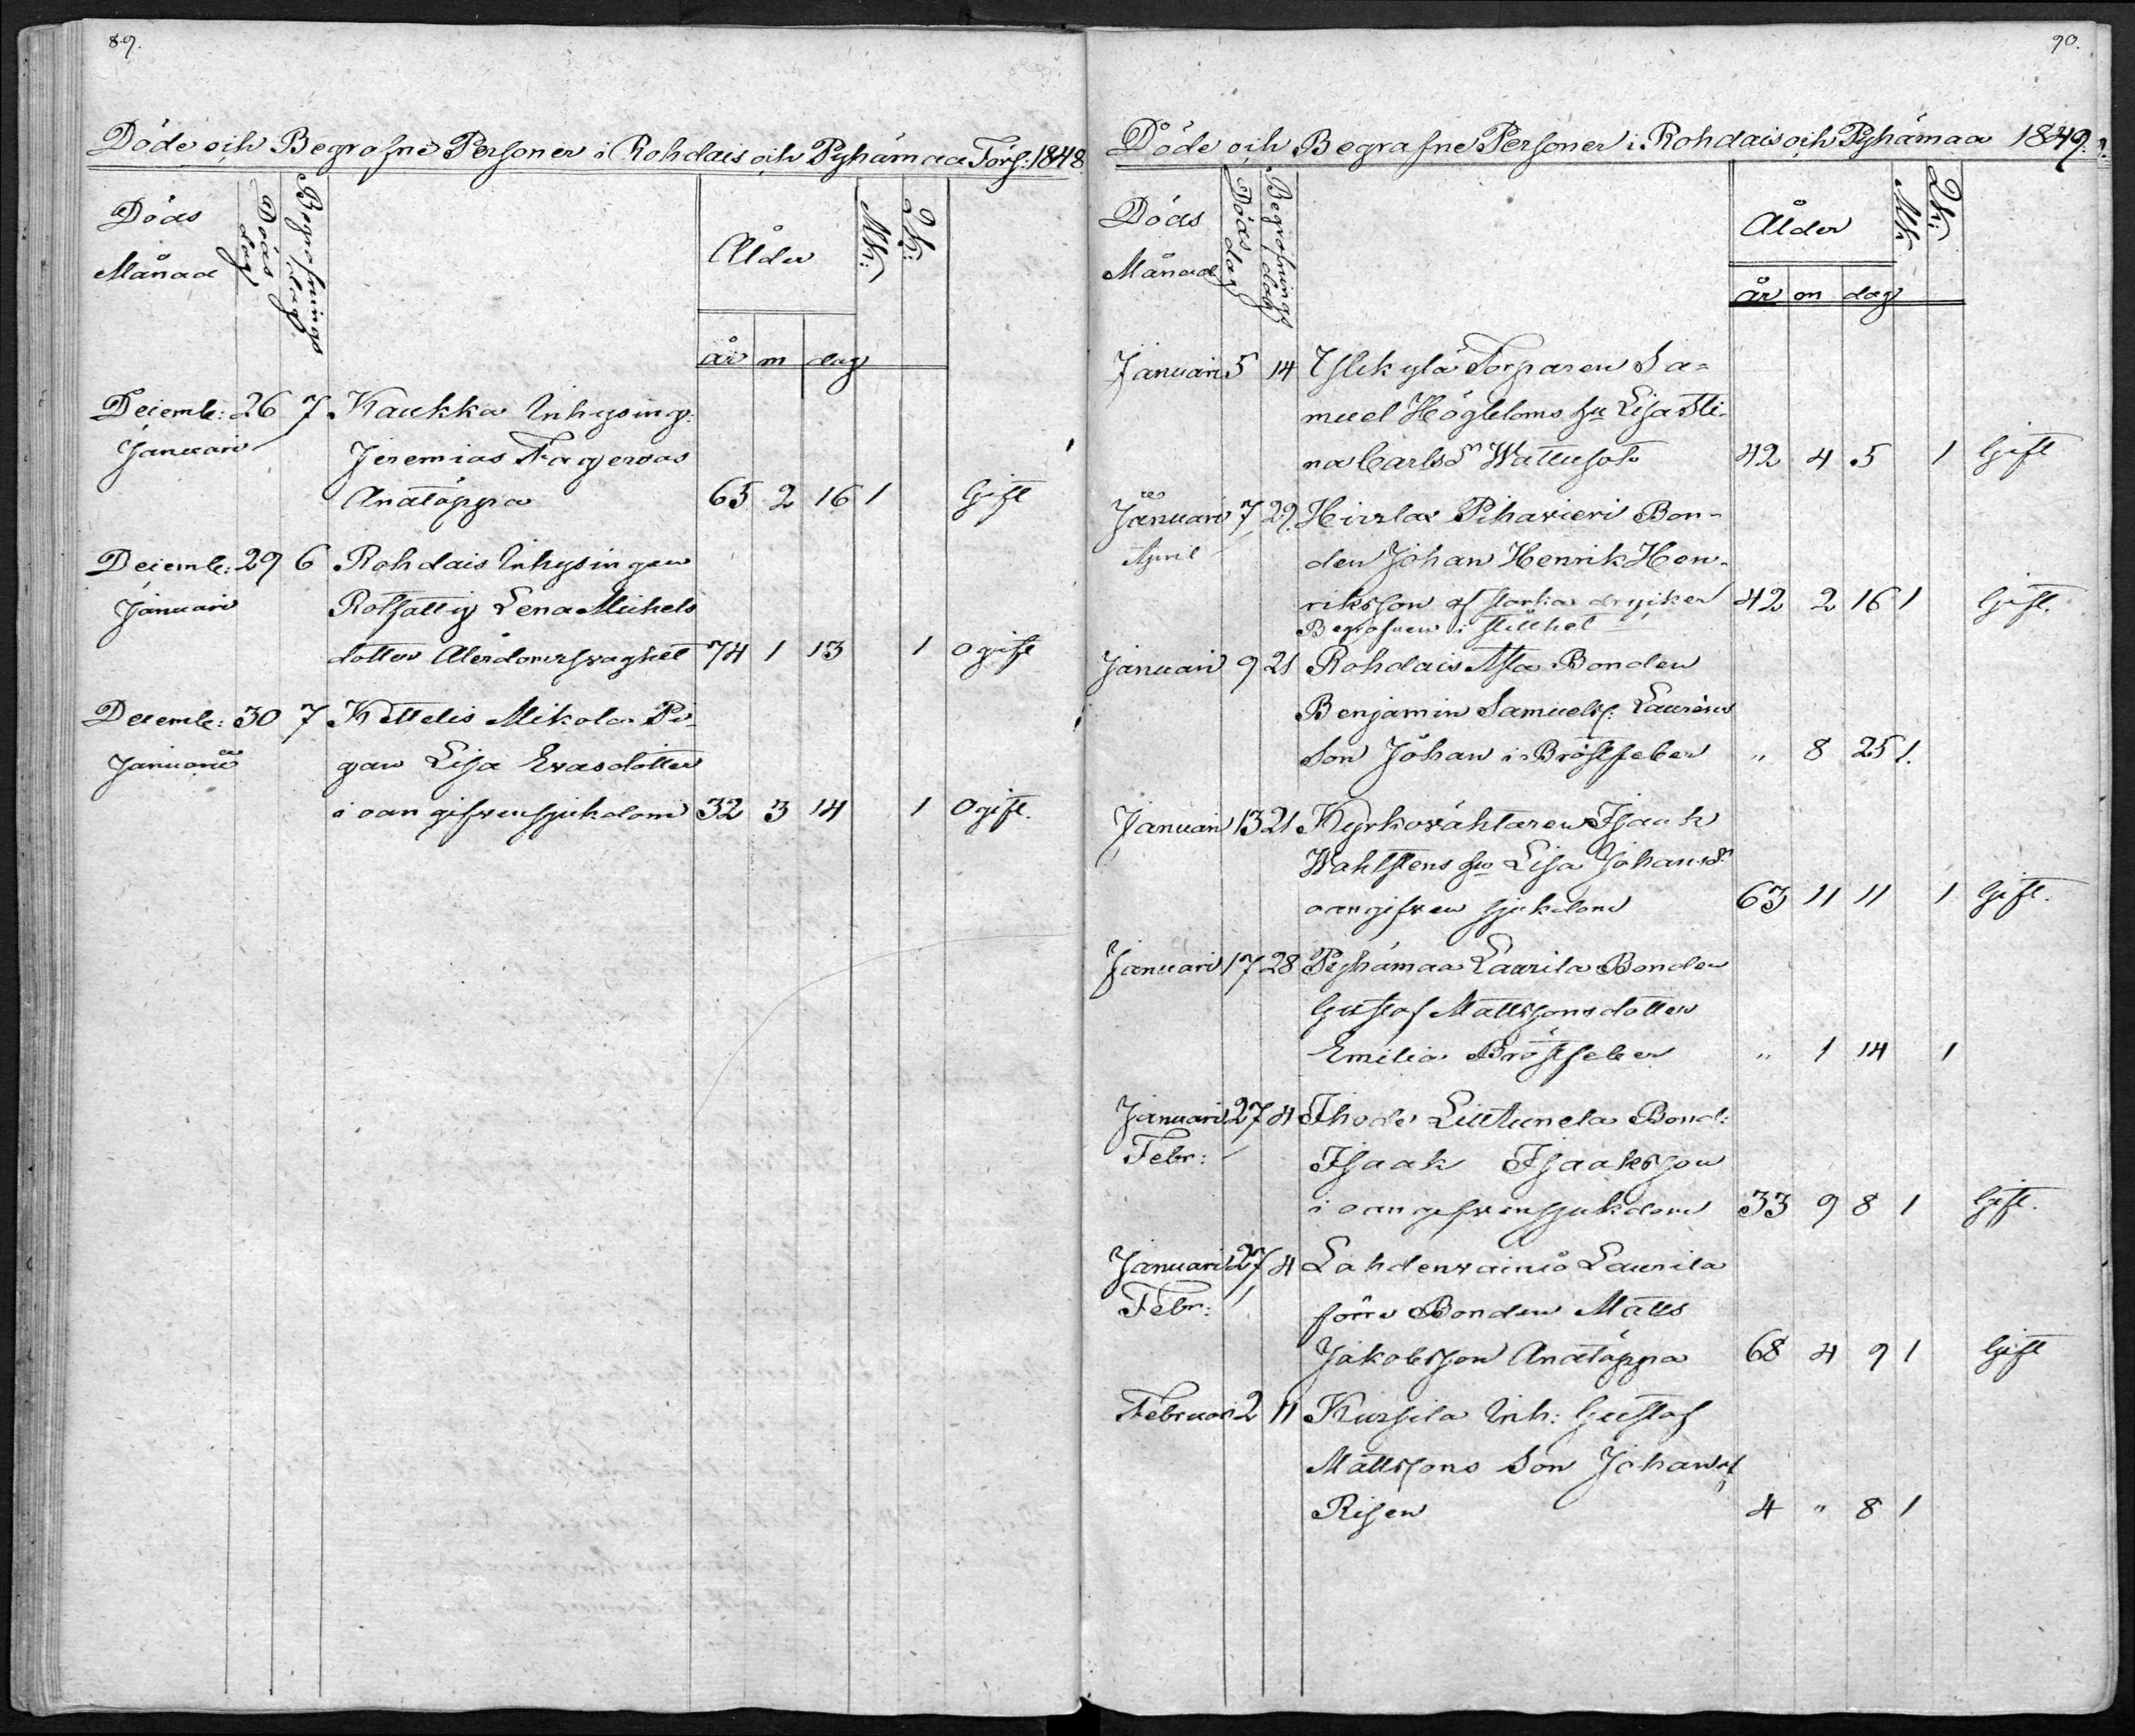 89.
Döde och Begrafne Personer i Rohdais och Pyhämaa Förs: 1848
Döds
Månad
Döds
dag
Begrafnings
dag
Ålder
Mk:
Qk:
år m dag
Decemb: 26 7 Kaukka Inhysing.
Januari Jeremias Fagerroos
Andtäppa 65 2 16 1 Gift
Decemb: 29 6 Rohdais Inhysingen
Januari Rotfattig Lena Michels
dotter Ålerdomsswaghet 74 1 13 1 ogift
Decemb: 30 7 Kettelis Mikola Pi-
Januari gan Lisa Ewasdotter
i oangifwen sjukdom 32 3 14 1 Ogift.
90.
Döde och Begrafne Personer i Rohdais och Pyhämaa 1849.
Döds
Månad
Döds dag
Begrafnings
dag
Ålder
Mk
Qk:
år m dag
Januari 5 14 Ylikylä Torparen Sa-
muel Högbloms hu Lisa Sti-
na Carlsdr Wattusot 42 4 5 1 Gift
Januari 7 29. Hirslax Pihavieri Bon-
April den Johan Henrik Hen-
riksson af starka drycker 42 2 16 1 Gift.
Begrafven i stillhet
Januari 9 21 Rohdais Bonden
Benjamin Samuelss: Lauréns
Son Johan i Bröstfeber " 8 25 1.
Januari 13 21 Kyrkowäktaren Isaak
Wahlstens hu Lisa Johansdr
oangifwen sjukdom 63 11 11 1 Gift.
Januari 17 28 Pyhämaa Laurila Bonden
Gustaf Mattssons dotter
Emilia Bröstfeber " 1 14 1
Januari 27 4 Ihode Lilltunela Bond:
Febr: Isaak Isaaksson
i oangifwen sjukdom 33 9 8 1 Gift.
Januari 27 4 Lahdenwainio Laurila
Febr: förre Bonden Matts
Jakobsson Andtäppa 68 4 9 1 Gift
Februari 2 11 Kursila Inh: Gustaf
Mattssons Son Johan af
Risen 4 " 8 1